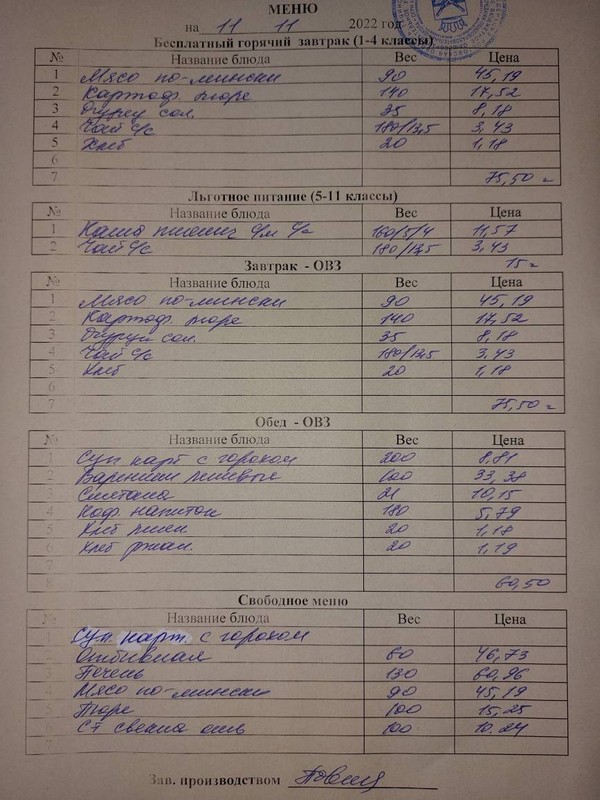 МЕНЮ
на 11 11 2022 год
Бесплатный горячий завтрак (1-4 классы)
№ Название блюда Вес Цена
1 Мясо по-мински 90 45,19
2 Картоф. пюре 140 17,52
3 Огурец сол. 35 8,18
4 Чай с/с 180/13,5 3,43
5 Хлеб 20 1,18
6
7 75,50
Льготное питание (5-11 классы)
№ Название блюда Вес Цена
1 Каша пшенич 160/5/4 11,57
2 Чай с/с 180/13,5 3,43
15
Завтрак - ОВЗ
№ Название блюда Вес Цена
1 Мясо по-мински 90 45,19
2 Картоф. пюре 140 17,52
3 Огурец сол. 35 8,18
4 Чай с/с 180/13,5 3,43
5 Хлеб 20 1,18
6
7 75,50
Обед - ОВЗ
№ Название блюда Вес Цена
1 Суп карт с горохом 200 8,81
2 Вареники 33,38
3 Сметана 21 10,15
4 Коф. напиток 180 5,79
5 Хлеб пшен 20 1,18
6 Хлеб ржан. 20 1,19
7
8 60,50
Свободное меню
№ Название блюда Вес Цена
1 Суп карт. с горохом
2 Отбивная 60 46,73
3 Печень 130 60,96
4 Мясо по-мински 90 45,19
5 Пюре 100 15,25
6 Ст свекла 100 10,24
7
Зав. производством